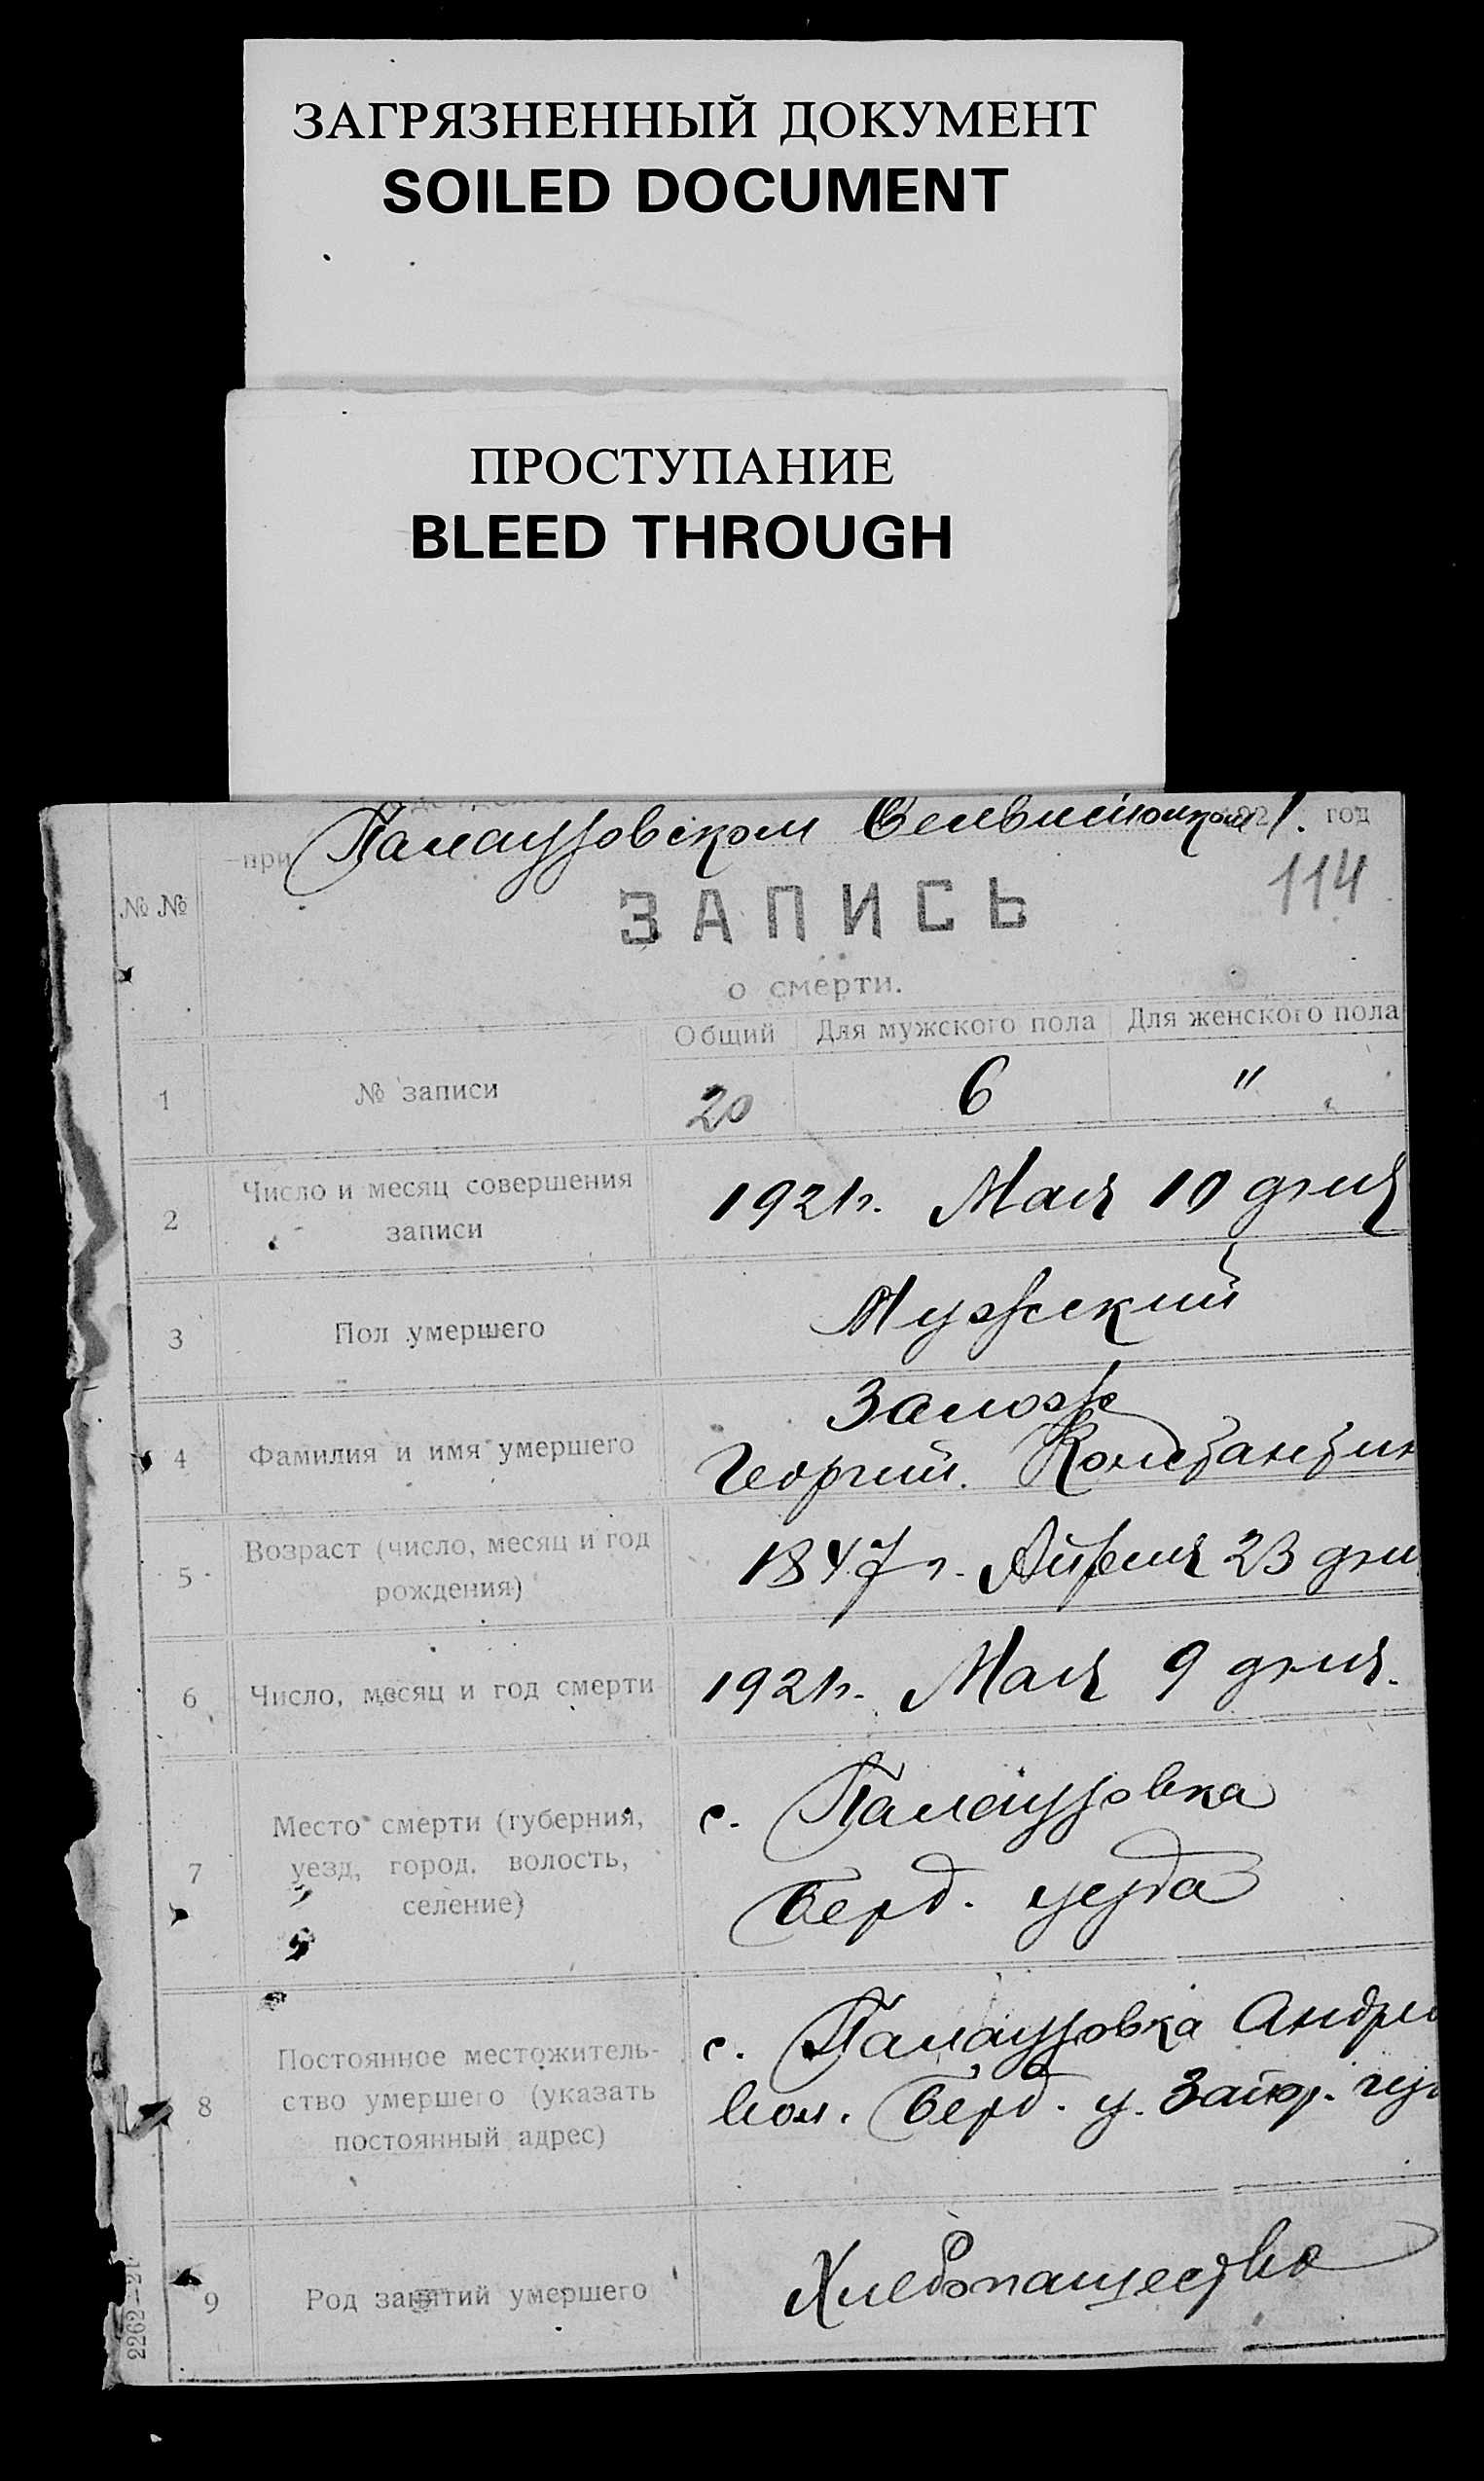 ЗАГРЯЗНЕННЫЙ ДОКУМЕНТ
SOILED DOCUMENT
ПРОСТУПАНИЕ
BLEED THROUGH
при Палаузовском 1. год
114
№ №
ЗАПИСЬ
о смерти.
Общий Для мужского пола Для женского пола
1 № записи 20 6 "
2 Число и месяц совершения записи 1921г. Мая 10 дня
3 Пол умершего Мужский
4 Фамилия и имя умершего
Георгий. Константин
5 Возраст (число, месяц и год рождения) 1847 г. Апреля 23 дн
6 Число, месяц и год смерти 1921г. Мая 9 дня.
7 Место смерти (губерния, уезд, город, волость, селение)
с. Палаузовка
Берд. уезда
8 Постоянное местожитель-
ство умершего (указать
постоянный адрес)
с. Палаузовка Андре
вол. Берд. у. Запор. губ
9 Род занятий умершего Хлебопашество
2262—21